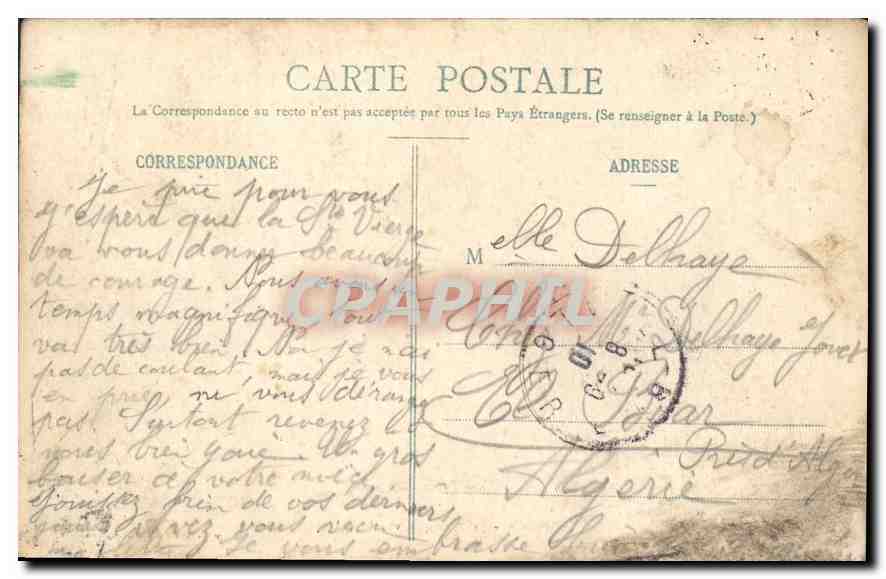 CARTE POSTALE
La Correspondance au recto n'est pas acceptée par tous les Pays Étrangers. (Se renseigner à la Poste.)
CORRESPONDANCE
Je prie pour vous
J'espère que la Ste Vierge
va vous donner beaucoup
de courage. Nous avons
temps magnifique, tout
va très bien. Non je n'ai
pas de courant, mais je vous
en prie, ne vous dérangez
pas. Surtout revenez
nous bien gaie. Un gros
baiser de votre
bien de vos derniers
vous
Je vous embrasse
ADRESSE
Melle Delhaye
Chez Mr Delhaye
El Biar
Près d'Alger
Algérie
CPAPHIL